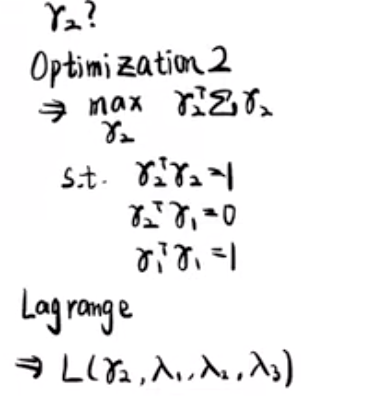 γ₂?
Optimization 2
⇒ max γ₂ᵀΣγ₂
γ₂
s.t. γ₂ᵀγ₂=1
γ₂ᵀγ₁=0
γ₁ᵀγ₁=1
Lagrange
⇒ L(γ₂,λ₁,λ₂,λ₃)